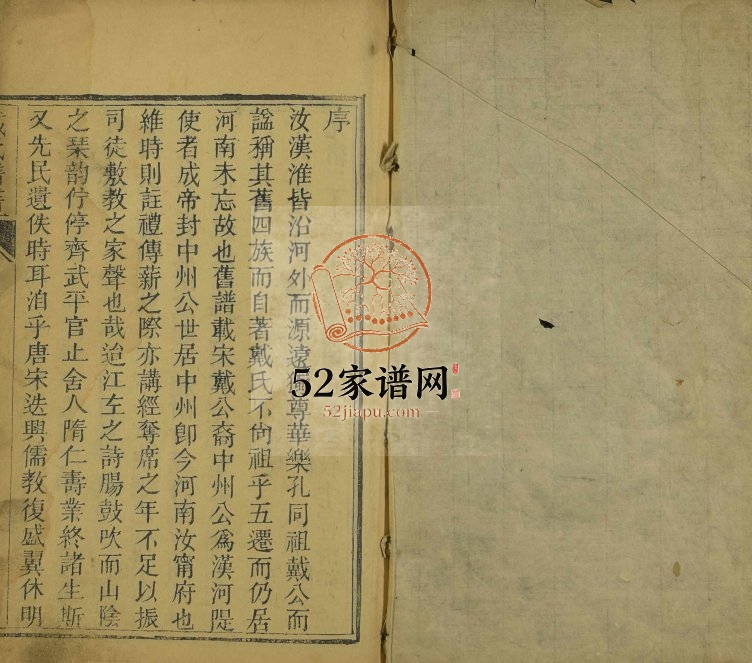 序
汝漢淮皆沿河外而源遠獨尊華樂孔同祖戴公而
諡稱其舊四族而自著戴氏不尙祖乎五遷而仍居
河南未忘故也舊譜載宋戴公裔中州公爲漢河隄
使者成帝封中州公世居中州卽今河南汝甯府也
維時則註禮傳薪之際亦講經奪席之年不足以振
司徒敷教之家聲也哉迨江左之詩腸鼓吹而山陰
之琹韵佇停齊武平官止舍人隋仁壽業終諸生斯
又先民遺佚時耳洎乎唐宋迭興儒教復盛翼休明
52家谱网
52jiapu.com